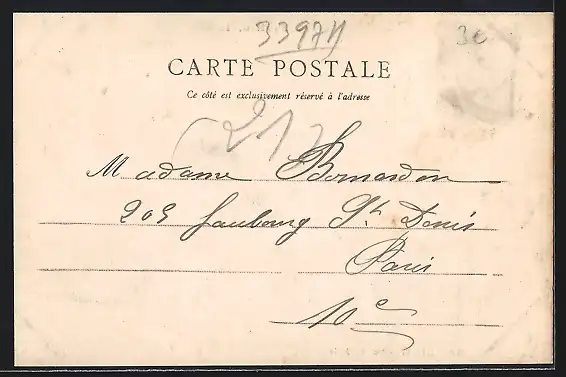 33971
3e
CARTE POSTALE
Ce côté est exclusivement réservé à l'adresse
21
Madame Bonardon
209 faubourg St. Denis
Paris
10e